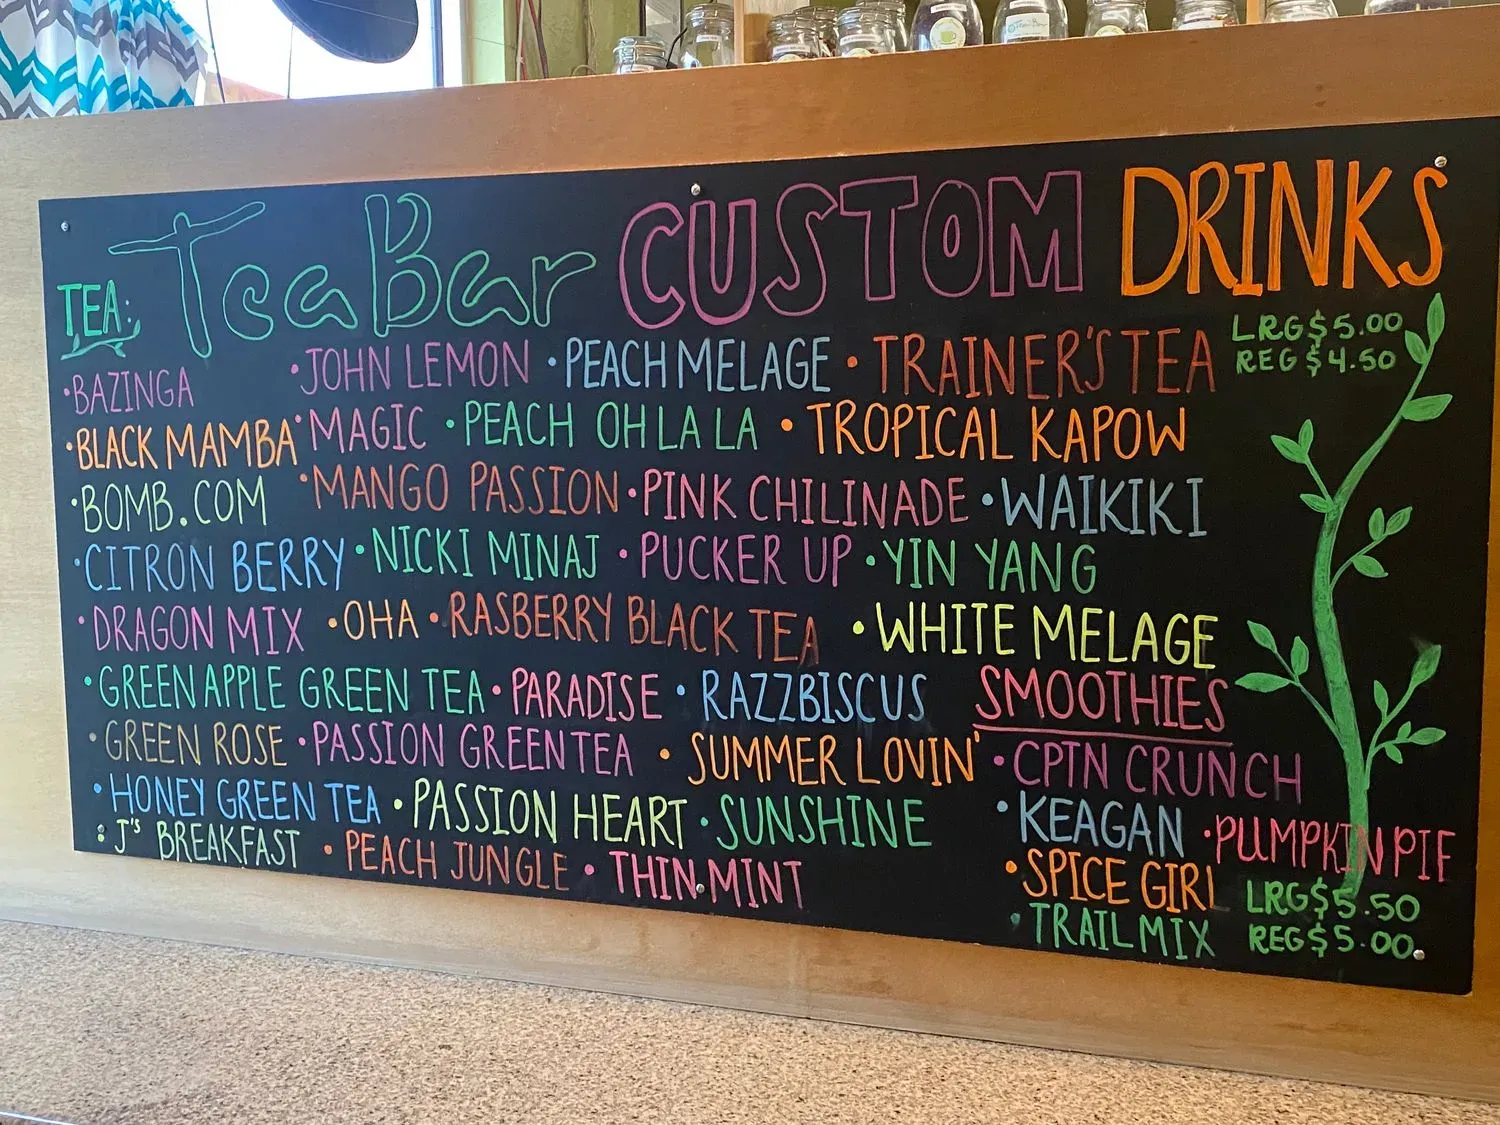 TeaBar CUSTOM DRINKS
TEA:
LRG $5.00
REG $4.50
•BAZINGA •JOHN LEMON •PEACH MELAGE •TRAINER'S TEA
•BLACK MAMBA •MAGIC •PEACH OH LA LA •TROPICAL KAPOW
•BOMB.COM •MANGO PASSION •PINK CHILINADE •WAIKIKI
•CITRON BERRY •NICKI MINAJ •PUCKER UP •YIN YANG
•DRAGON MIX •OHA •RASBERRY BLACK TEA •WHITE MELAGE
•GREEN APPLE GREEN TEA •PARADISE •RAZZBISCUS
•GREEN ROSE •PASSION GREEN TEA •SUMMER LOVIN'
•HONEY GREEN TEA •PASSION HEART •SUNSHINE
•J's BREAKFAST •PEACH JUNGLE •THIN MINT
SMOOTHIES
•CPTN CRUNCH
•KEAGAN •PUMPKIN PIE
•SPICE GIRL
•TRAIL MIX
LRG $5.50
REG $5.00